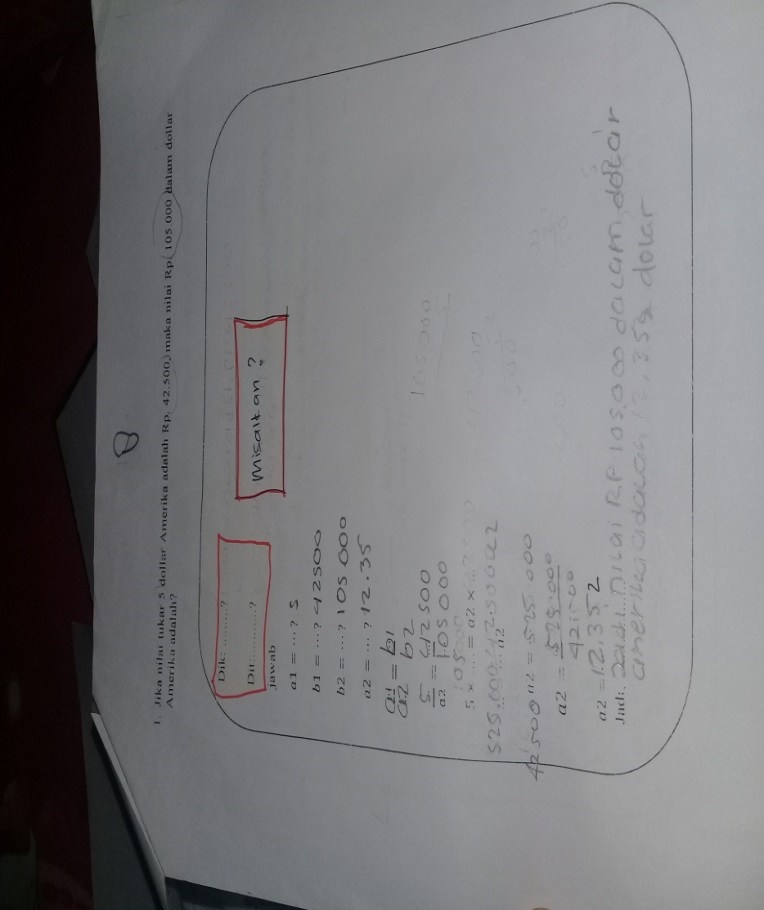 1. Jika nilai tukar 5 dollar Amerika adalah Rp. 42.500, maka nilai Rp. 105.000 dalam dollar
Amerika adalah?
Dik: ..........?
Dit: ..........?
Misalkan ?
Jawab
a1 = ...? 5
b1 = ...? 42500
b2 = ...? 105 000
a2 = ...? 12.35
a1 = b1
a2 b2
5 = 42500
a2 105000
5 x 105.000 = a2 x ...
525.000 42.500 a2
42500 a2 = 525.000
a2 = 525.000
42500
a2 = 12.352
Jadi: Jadi nilai RP 105.000 dalam dolar
amerika adalah 12,352 dolar